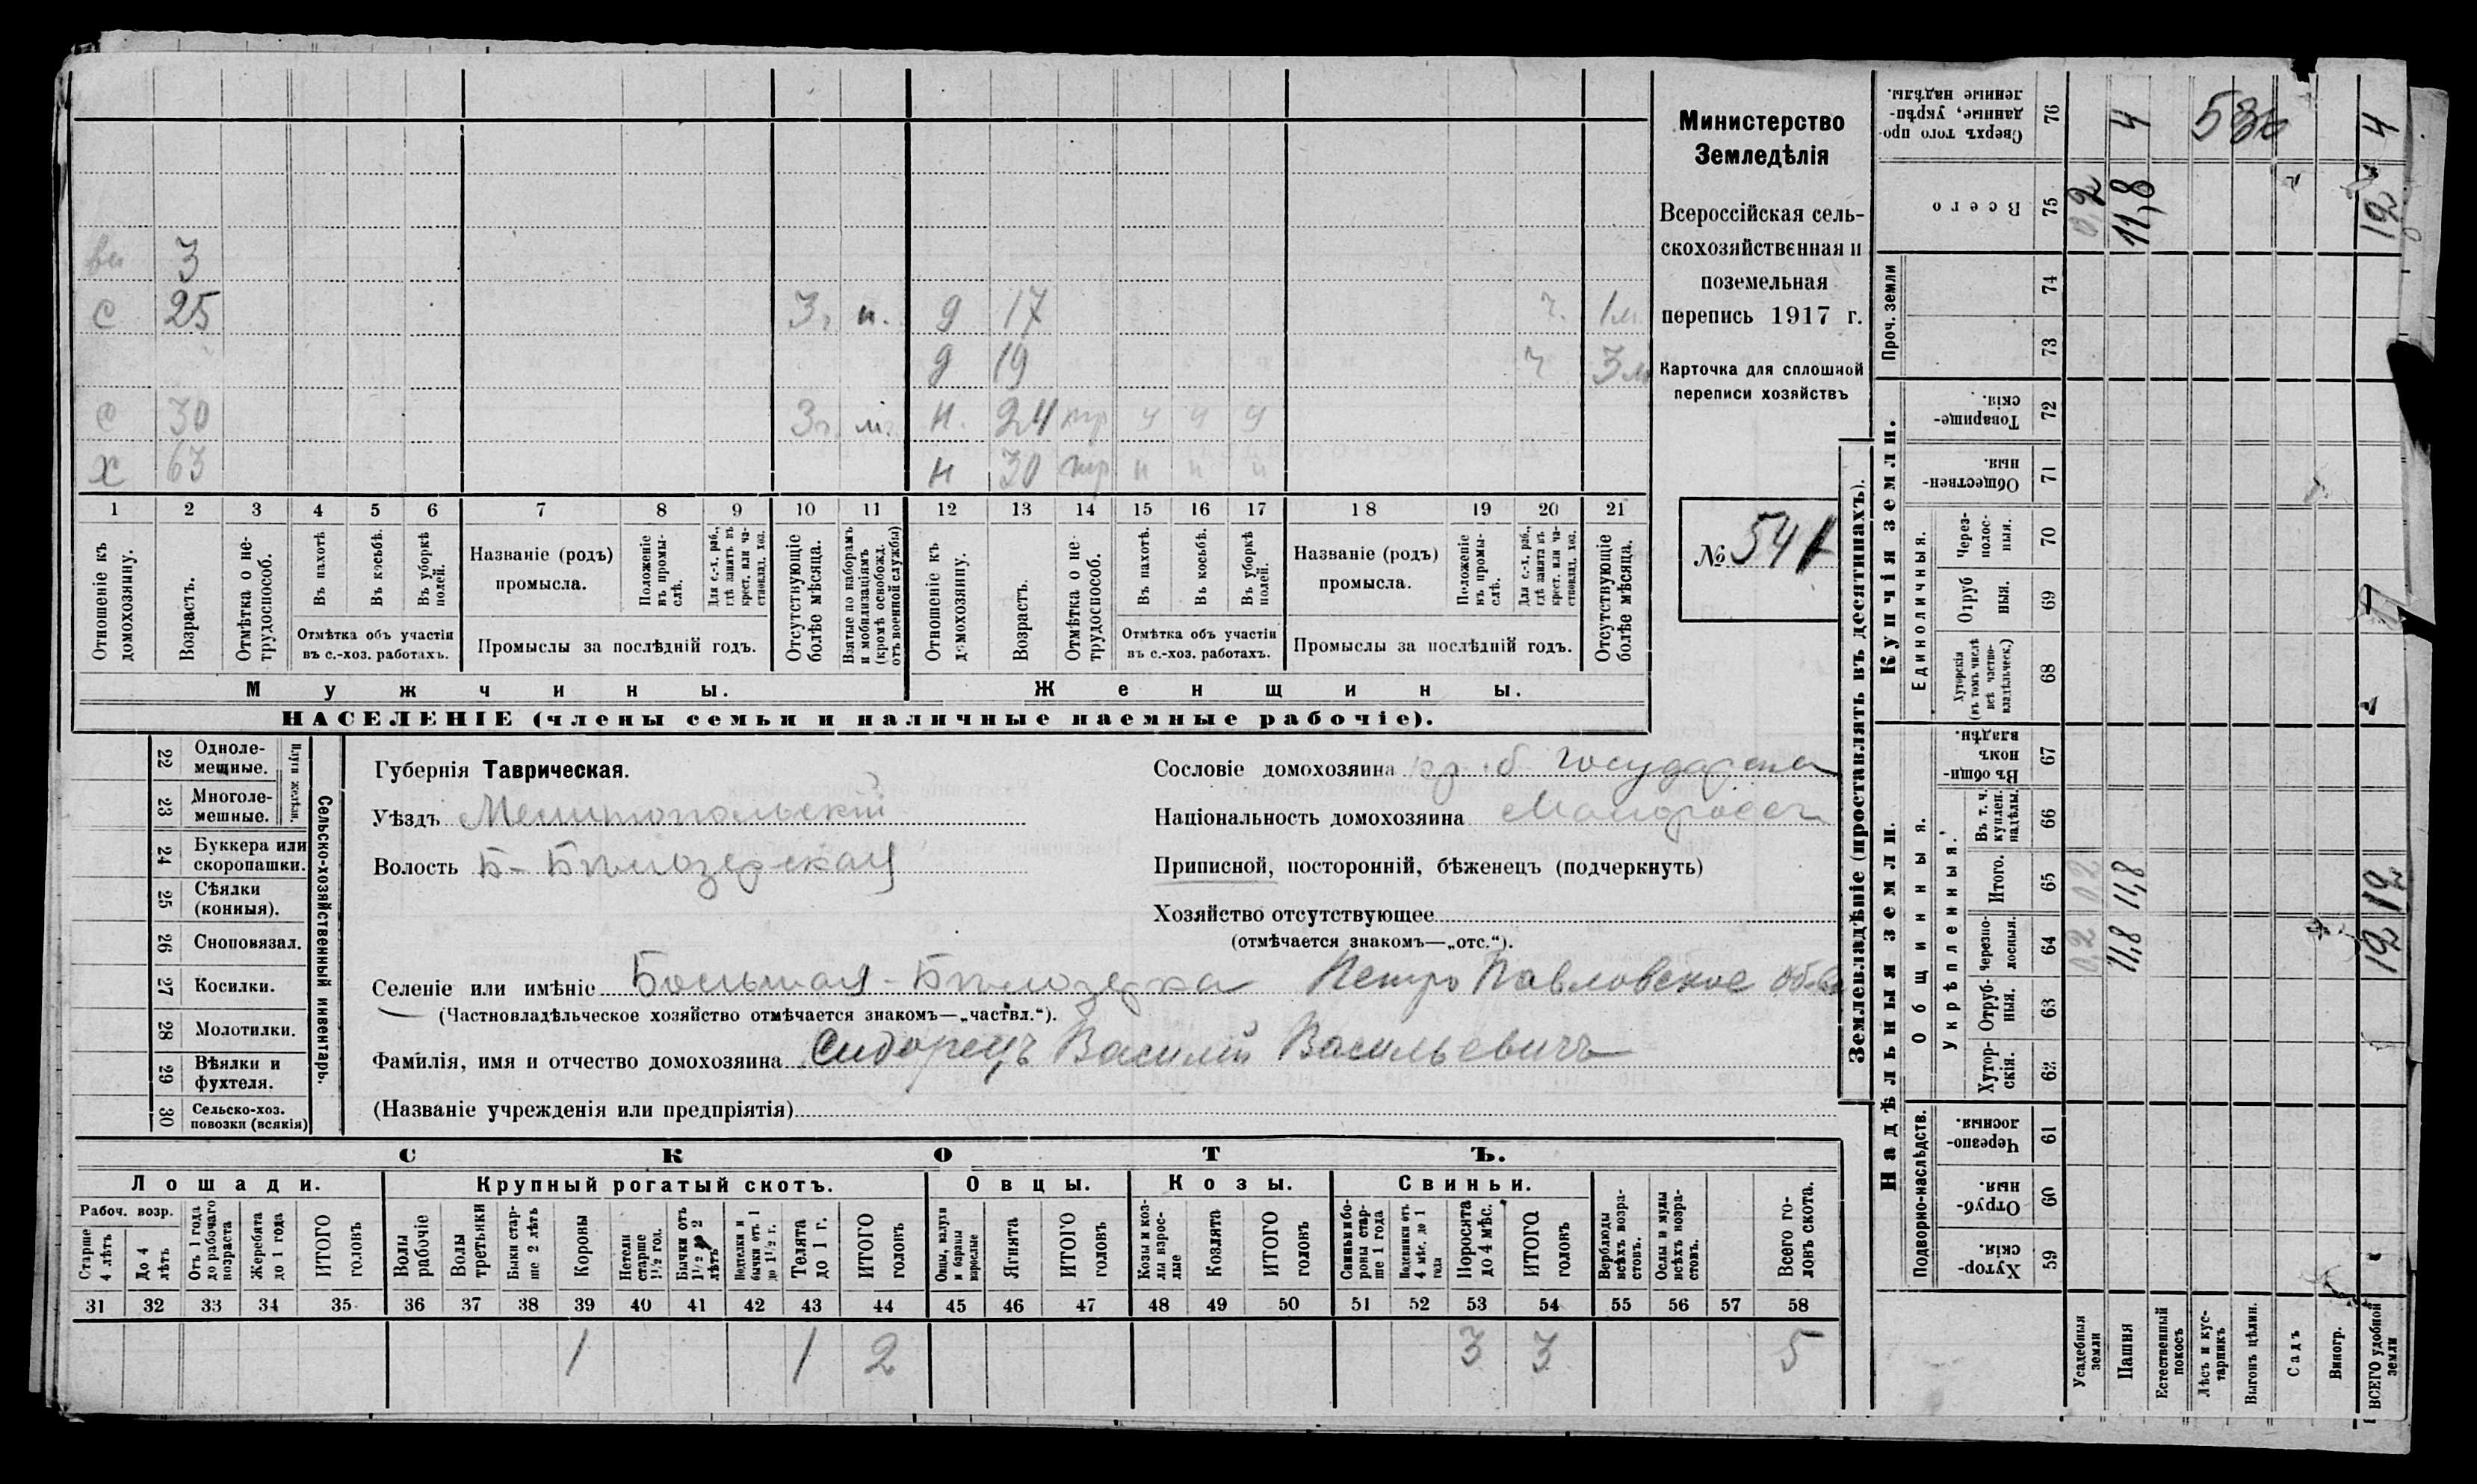 вн 3
с 25 3 г. н. д 17 г. 1 м
д 19 3 м
с 30 3 г. м. н. 24 нтр ч ч ч
х 63 н 30 нтр н н н
1 2 3 4 5 6 7 8 9 10 11 12 13 14 15 16 17 18 19 20 21
Отношеніе къ домохозяину.
Возрастъ.
Отмѣтка о нетрудоспособ.
Въ пахотѣ
Въ косьбѣ.
Въ уборкѣ полей.
Отмѣтка объ участіи
въ с.-хоз. работахъ.
Названіе (родъ)
промысла.
Положеніе въ промыслѣ.
Для с.-х. раб., гдѣ занятъ въ крест. или частновлад. хоз.
Промыслы за послѣдній годъ.
Отсутствующіе болѣе мѣсяца.
Взятые по наборамъ и мобилизаціямъ (кромѣ освобожд. отъ военной службы)
Отношеніе къ домохозяину.
Возрастъ.
Отмѣтка о нетрудоспособ.
Въ пахотѣ.
Въ косьбѣ.
Въ уборкѣ полей.
Отмѣтка объ участіи
въ с.-хоз. работахъ.
Названіе (родъ)
промысла.
Положеніе въ промыслѣ.
Для с.-х. раб., гдѣ занята въ крест. или частновлад. хоз.
Промыслы за послѣдній годъ.
Отсутствующіе болѣе мѣсяца.
Мужчины.
Женщины.
НАСЕЛЕНІЕ (члены семьи и наличные наемные рабочіе).
Министерство
Земледѣлія
Всероссійская сель-
скохозяйственная и
поземельная
перепись 1917 г.
Карточка для сплошной
переписи хозяйствъ
№ 541
22 Одноле-
мешные.
23 Многоле-
мешные.
Плуги желѣзн.
24 Буккера или
скоропашки.
25 Сѣялки
(конныя).
26 Сноповязал.
27 Косилки.
28 Молотилки.
29 Вѣялки и
фухтеля.
30 Сельско-хоз.
повозки (всякія)
Сельско-хозяйственный инвентарь.
Губернія Таврическая.
Уѣздъ Мелитопольскій
Волость Б-Бѣлозерская
Сословіе домохозяина кр. б. государств
Національность домохозяина Малороссъ
Приписной, посторонній, бѣженецъ (подчеркнуть)
Хозяйство отсутствующее
(отмѣчается знакомъ—„отс.“).
Селеніе или имѣніе Большая-Бѣлозерка Петро Павловское общ
(Частновладѣльческое хозяйство отмѣчается знакомъ—„частвл.“).
Фамилія, имя и отчество домохозяина Сидорецъ Василій Васильевичъ
(Названіе учрежденія или предпріятія)
СКОТЪ.
Лошади. Крупный рогатый скотъ. Овцы. Козы. Свиньи.
Рабоч. возр.
Старше 4 лѣтъ
До 4 лѣтъ
Отъ 1 года до рабочаго возраста
Жеребята до 1 года
ИТОГО головъ
Волы рабочіе
Волы третьяки
Быки старше 2 лѣтъ
Коровы
Нетели старше 1½ год.
Бычки отъ 1½ до 2 лѣтъ
Подтелки и бычки отъ 1 до 1½ г.
Телята до 1 г.
ИТОГО головъ
Овцы, валухи и бараны взрослые
Ягнята
ИТОГО головъ
Козы и козлы взрослые
Козлята
ИТОГО головъ
Свиньи и бороны старше 1 года
Подсвинки отъ 4 мѣс. до 1 года
Поросята до 4 мѣс.
ИТОГО головъ
Верблюды всѣхъ возрастовъ.
Ослы и мулы всѣхъ возрастовъ.
Всего головъ скота.
31 32 33 34 35 36 37 38 39 40 41 42 43 44 45 46 47 48 49 50 51 52 53 54 55 56 57 58
1 1 2 3 3 5
Землевладѣніе (проставлять въ десятинахъ).
Надѣльныя земли.
Купчія земли.
Проч. земли
Подворно-наслѣдств.
Общинныя.
Укрѣпленныя.
Единоличныя.
Сверхъ того проданные, укрѣпленные надѣлы. 76 4 536 4
Всего 75 0,2 11,8 12
74
73
Товарищескія. 72
Общественныя. 71
Черезполосныя. 70
Отрубныя. 69
Хуторскія (въ томъ числѣ всѣ частновладѣльческ.) 68
Въ общинномъ владѣн. 67
Въ т. ч. куплен. надѣлы. 66
Итого. 65 0,2 11,8 12
Черезполосныя. 64 0,2 11,8 12
Отрубныя. 63
Хуторскія. 62
Черезполосныя. 61
Отрубныя. 60
Хуторскія. 59
Усадебныя земли
Пашня
Естественный покосъ
Лѣсъ и кустарникъ
Выгонъ цѣлин.
Садъ
Виногр.
ВСЕГО удобной земли